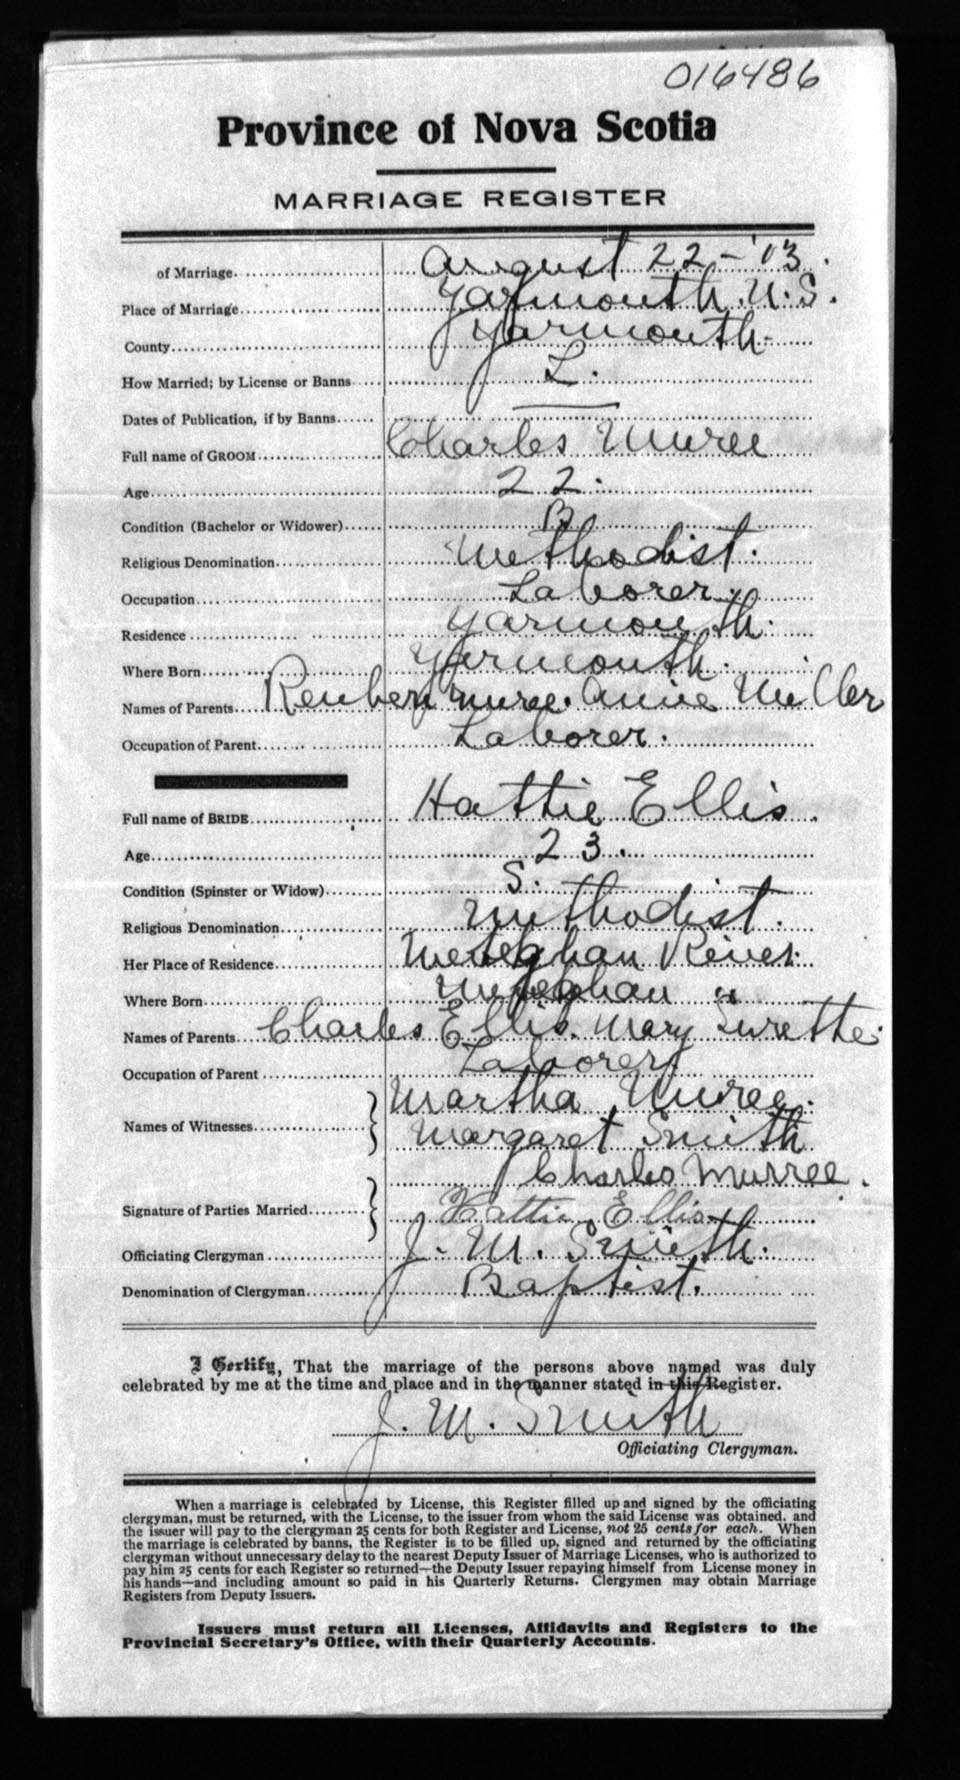 016486
Province of Nova Scotia
MARRIAGE REGISTER
of Marriage August 22 - '03.
Place of Marriage Yarmouth N.S.
County Yarmouth.
How Married; by License or Banns L.
Dates of Publication, if by Banns —
Full name of GROOM Charles Muree
Age 22.
Condition (Bachelor or Widower) B
Religious Denomination Methodist.
Occupation Laborer.
Residence Yarmouth.
Where Born Yarmouth.
Names of Parents Reuben Muree. Annie Miller
Occupation of Parent Laborer.
Full name of BRIDE Hattie Ellis.
Age 23.
Condition (Spinster or Widow) S.
Religious Denomination Methodist.
Her Place of Residence Meteghan River.
Where Born Meteghan "
Names of Parents Charles Ellis. Mary Surette.
Occupation of Parent Laborer
Names of Witnesses Martha Muree.
Margaret Smith
Charles Murree.
Signature of Parties Married Hattie Ellis
Officiating Clergyman J. M. Smith.
Denomination of Clergyman Baptist.
I Certify, That the marriage of the persons above named was duly
celebrated by me at the time and place and in the manner stated in this Register.
J. M. Smith
Officiating Clergyman.
When a marriage is celebrated by License, this Register filled up and signed by the officiating
clergyman, must be returned, with the License, to the issuer from whom the said License was obtained, and
the issuer will pay to the clergyman 25 cents for both Register and License, not 25 cents for each. When
the marriage is celebrated by banns, the Register is to be filled up, signed and returned by the officiating
clergyman without unnecessary delay to the nearest Deputy Issuer of Marriage Licenses, who is authorized to
pay him 25 cents for each Register so returned—the Deputy Issuer repaying himself from License money in
his hands—and including amount so paid in his Quarterly Returns. Clergymen may obtain Marriage
Registers from Deputy Issuers.
Issuers must return all Licenses, Affidavits and Registers to the
Provincial Secretary's Office, with their Quarterly Accounts.